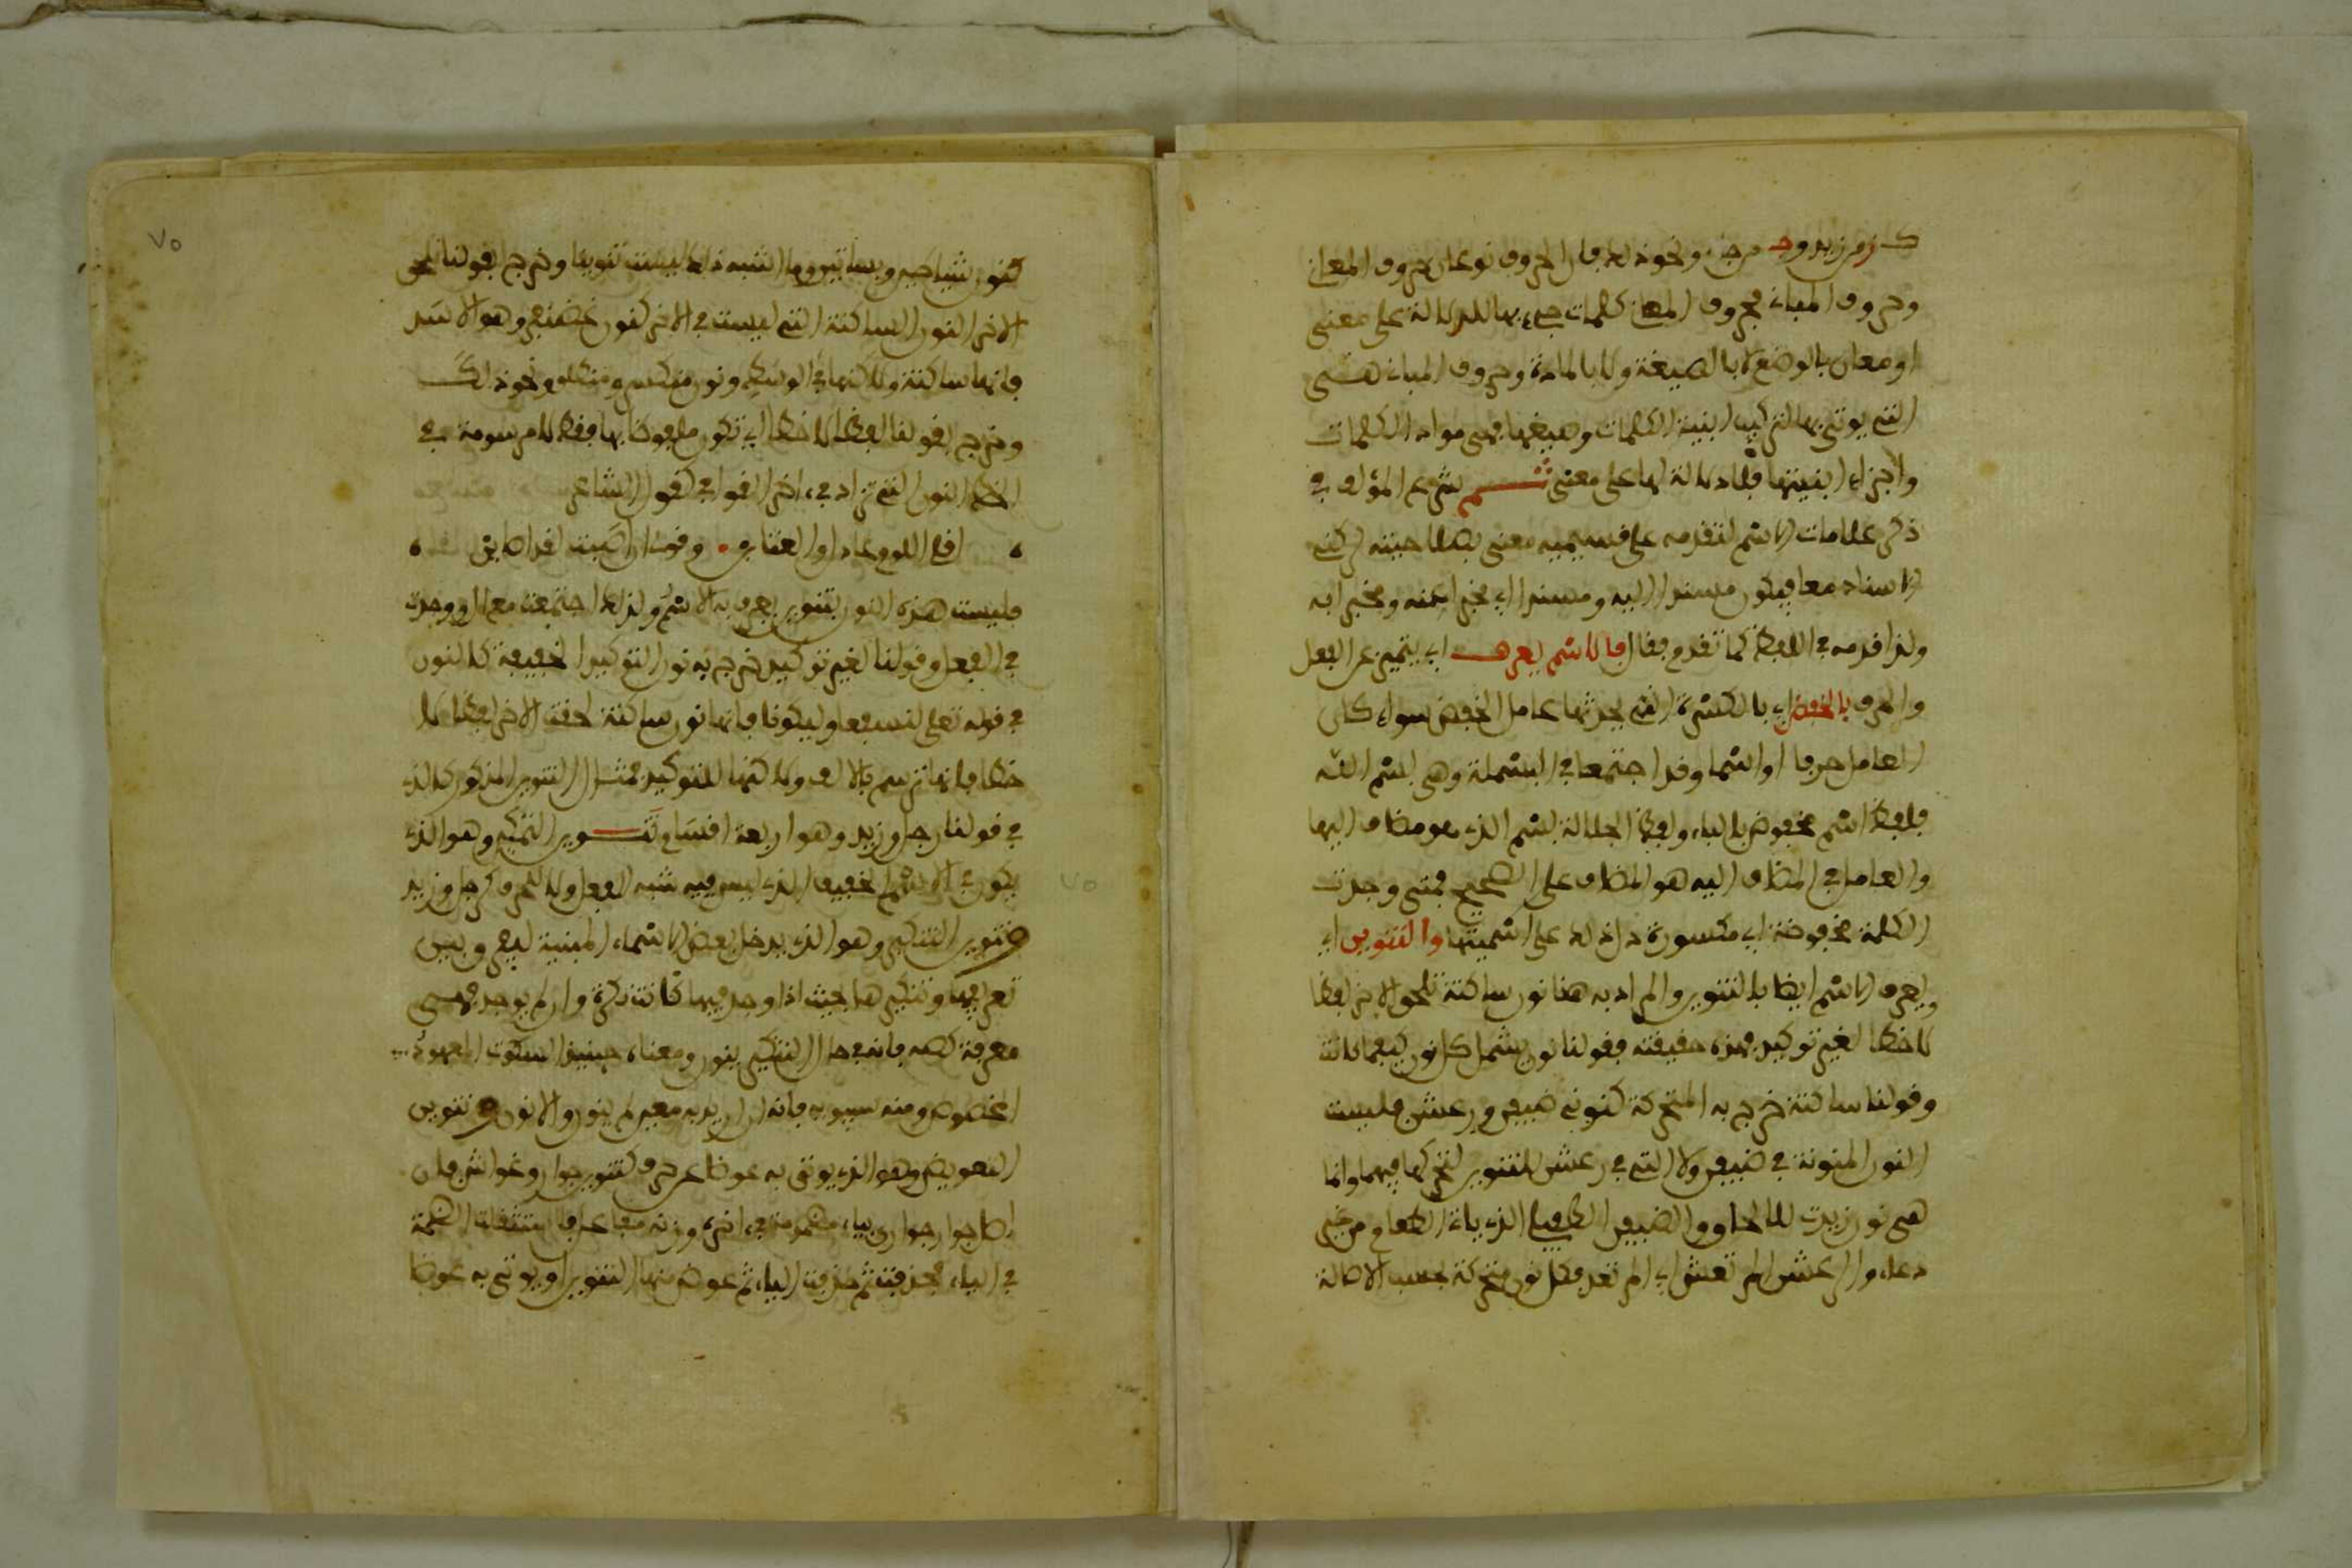 كز من زيد وجـ من جزء ونحو ذلك فان الحروف نوعان حروف المعان
وحروف المباني فحروف المعان كلمات جيء بها للدلالة على معنى
او معان بالوضع لا بالصيغة ولا بالمادة وحروف المباني هي
التي يوتى بها لتركيب ابنية الكلمات وصيغها فهي مواد الكلمات
واجزاء ابنيتها فلا دلالة لها على معنى ثـم شرع المؤلف في
ذكر علامات الاسم لتقدمه على قسيميه معنى بصلاحيته لركني
الاسناد معا فيكون مسندا اليه ومسندا اي مخبرا عنه ومخبرا به
ولذا قدمه في اللفظ كما تقدم فقال فالاسم يعرف اي يتميز عن الفعل
والحرف بالخفض اي بالكسرة التي يحدثها عامل الخفض سواء كان
العامل حرفا او اسما وقد اجتمعا في البسملة وهي بسم الله
فلفظ اسم مخفوض بالباء ولفظ الجلالة بسم الذي هو مضاف اليها
والعامل في المضاف اليه هو المضاف على الصحيح فمتى وجدت
الكلمة مخفوضة اي مكسورة دل ذلك على اسميتها والتنوين اي
ويعرف الاسم ايضا بالتنوين والمراد به هنا نون ساكنة تلحق الاخر لفظا
لا خطا لغير توكيد فهذه حقيقته فقولنا نون يشمل كل نون كيفما كانت
وقولنا ساكنة خرج به المتحركة كنوني ضيفن ورعشن فليست
النون المنونة في ضيفن ولا التي في رعشن بتنوين لتحركها فيهما وانما
هي نون زيدت للالحاق والضيفن الطفيلي الذي ياتي الطعام من غير
دعاء والرعشن المرتعش اي المرتعد فكل نون متحركة بحسب الاصالة
كنون شياطين وبساتين وما اشبه ذلك ليست تنوينا وخرج بقولنا تلحق
الاخر النون الساكنة التي ليست في الاخر كنون غضنفر وهو الاسد
فانها ساكنة ولاكنها في الوسط ونون منكسر ومنطلق ونحو ذلك
وخرج بقولنا لفظا لا خطا اي تكون ملفوظا بها فقط لا مرسومة في
الخط النون التي تزاد في اخر القوافي كقول الشاعر
اقلي اللوم عاذل والعتابن • وقولي ان اصبت لقد اصابن
فليست هذه النون بتنوين يعرف به الاسم ولذلك اجتمعت مع ال ووجدت
في الفعل وقولنا لغير توكيد خرج به نون التوكيد الخفيفة كالنون
في قوله تعلى لنسفعا وليكونا فانها نون ساكنة لحقت الاخر لفظا لا
خطا فانها ترسم بالالف ولاكنها للتوكيد فمثال التنوين المذكور كالذي
في قولنا رجل وزيد وهو اربعة اقسام تنـوين التمكين وهو الذي
يكون في الاسم الخفيف الذي ليس فيه شبه الفعل ولا الحرف كرجل وزيد
وتنوين التنكير وهو الذي يدخل بعض الاسماء المبنية ليعرف وبين
تعريفها وتنكيرها بحيث اذا وجد فيها كانت نكرة وان لم يوجد فهي
معرفة كصه فانه في حال التنكير ينون ومعناه حينئذ السكوت المعهود
المخصوص ومنه سيبويه فانه ان اريد به معين لم ينون والا نون وتنوين
التعويض وهو الذي يوتى به عوضا عن حرف كتنوين جوار وغواش فان
اصل جوار جواري بياء مضمومة في اخره وزنه مفاعل فاستثقلت الضمة
في الياء فحذفت ثم حذفت الياء ثم عوض منها التنوين او يوتى به عوضا
٧٥